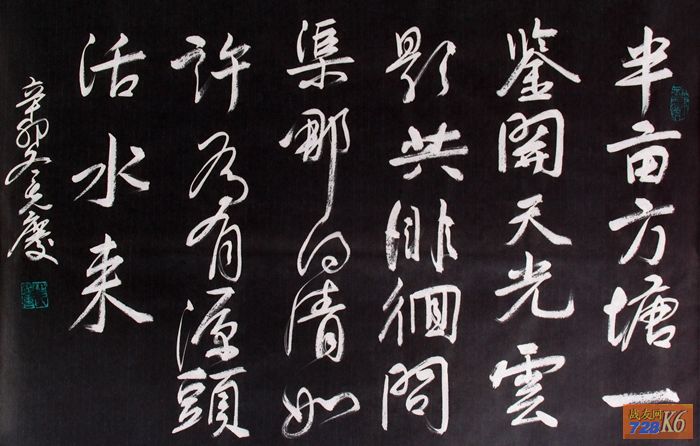 半亩方塘一
鉴開天光雲
影共徘徊問
渠那得清如
許为有源頭
活水来
辛卯冬元慶
战友网
728K6